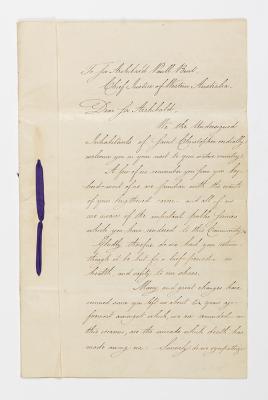 To Sir Archibald Paull Burt
Chief Justice of Western Australia.
Dear Sir Archibald.
We the Undersigned
Inhabitants of Saint Christopher cordially
welcome you in your visit to your native country.
A few of us remember you from your boy-
hood - most of us are familiar with the events
of your manhood and all of us
are aware of the important public services
which you have rendered to this Community.
Gladly therefore do we hail your return
though it be but for a brief in
health and safety to our shores.
Many and great changes have
occurred since you left us about years ago
foremost amongst which, we are reminded on
this occasion, are the inroads which death has
made among us. Sincerely do we sympathize